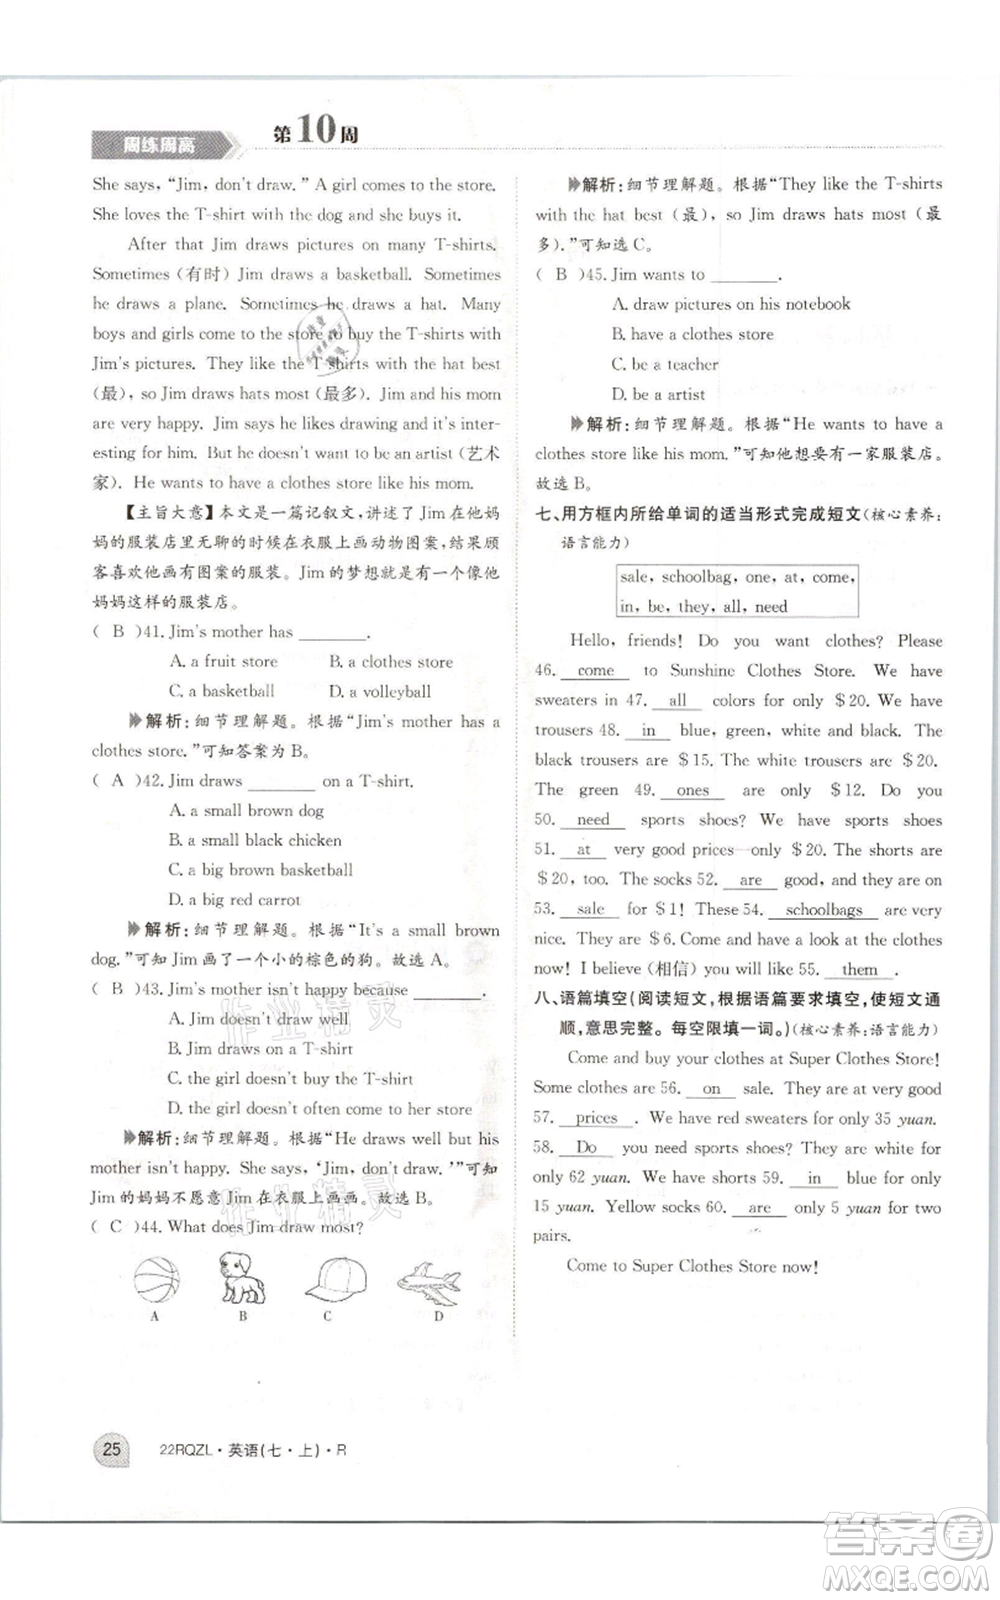 周练周高
第10周
She says, “Jim, don't draw.” A girl comes to the store.
She loves the T-shirt with the dog and she buys it.
After that Jim draws pictures on many T-shirts.
Sometimes (有时) Jim draws a basketball. Sometimes he
draws a plane. Sometimes he draws a hat. Many
boys and girls come to the store to buy the T-shirts with
Jim's pictures. They like the T-shirts with the hat best
(最), so Jim draws hats most (最多). Jim and his mom
are very happy. Jim says he likes drawing and it's inter-
esting for him. But he doesn't want to be an artist (艺术
家). He wants to have a clothes store like his mom.
【主旨大意】本文是一篇记叙文,讲述了 Jim 在他妈
妈的服装店里无聊的时候在衣服上画动物图案,受到
顾客喜欢他画有图案的服装。Jim 的梦想就是开一个像他
妈妈这样的服装店。
( B )41. Jim's mother has ________.
A. a fruit store B. a clothes store
C. a basketball D. a volleyball
解析:细节理解题。根据“Jim's mother has a
clothes store.”可知答案为 B。
( A )42. Jim draws ________ on a T-shirt.
A. a small brown dog
B. a small black chicken
C. a big brown basketball
D. a big red carrot
解析:细节理解题。根据“It's a small brown
dog.”可知 Jim 画了一个小的棕色的狗。故选 A。
( B )43. Jim's mother isn't happy because ________.
A. Jim doesn't draw well
B. Jim draws on a T-shirt
C. the girl doesn't buy the T-shirt
D. the girl doesn't often come to her store
解析:细节理解题。根据“He draws well but his
mother isn't happy. She says, ‘Jim, don't draw.’”可知
Jim 的妈妈不愿意 Jim 在衣服上画画。故选 B。
( C )44. What does Jim draw most?
A B C D
解析:细节理解题。根据“They like the T-shirts
with the hat best (最), so Jim draws hats most (最
多).”可知选 C。
( B )45. Jim wants to ________.
A. draw pictures on his notebook
B. have a clothes store
C. be a teacher
D. be a artist
解析:细节理解题。根据“He wants to have a
clothes store like his mom.”可知他想要有一家服装店。
故选 B。
七、用方框内所给单词的适当形式完成短文(核心素养:
语言能力)
sale, schoolbag, one, at, come,
in, be, they, all, need
Hello, friends! Do you want clothes? Please
46. come to Sunshine Clothes Store. We have
sweaters in 47. all colors for only $20. We have
trousers 48. in blue, green, white and black. The
black trousers are $15. The white trousers are $20.
The green 49. ones are only $12. Do you
50. need sports shoes? We have sports shoes
51. at very good prices—only $20. The shorts are
$20, too. The socks 52. are good, and they are on
53. sale for $1! These 54. schoolbags are very
nice. They are $6. Come and see our great clothes
now! I believe (相信) you will like 55. them.
八、语篇填空(阅读短文,根据语篇要求填空,使短文通
顺,意思完整。每空限填一词。)(核心素养:语言能力)
Come and buy your clothes at Super Clothes Store!
Some clothes are 56. on sale. They are at very good
57. prices. We have red sweaters for only 35 yuan.
58. Do you need sports shoes? They are white for
only 62 yuan. We have black shorts 59. in only 19
yuan. Yellow socks 60. are only 5 yuan for two
pairs.
Come to Super Clothes Store now!
25 22RQZL·英语(七·上)·R
作业精灵
作业精灵
答案卷
MXQE.COM